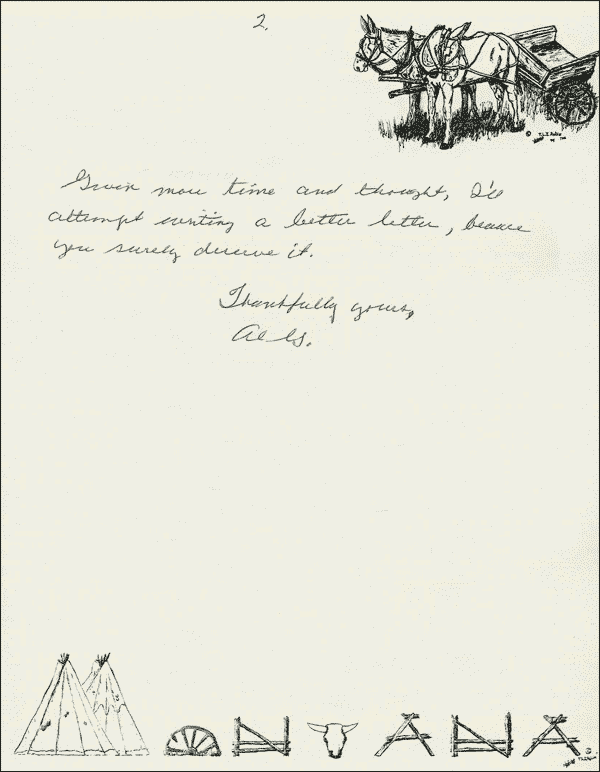 2.
Given more time and thought, I'll
attempt writing a better letter, because
you surely deserve it.
Thankfully yours,
Al G.
MONTANA